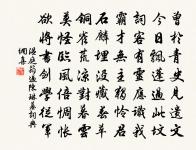 曾於青史見遺文
今日飄蓬過此墳
詞客有靈應識我
霸才無主始憐君
石麟埋沒藏春草
銅雀荒涼對暮雲
莫怪臨風倍惆悵
欲將書劍學從軍
溫庭筠過陳琳墓詞典
網喜